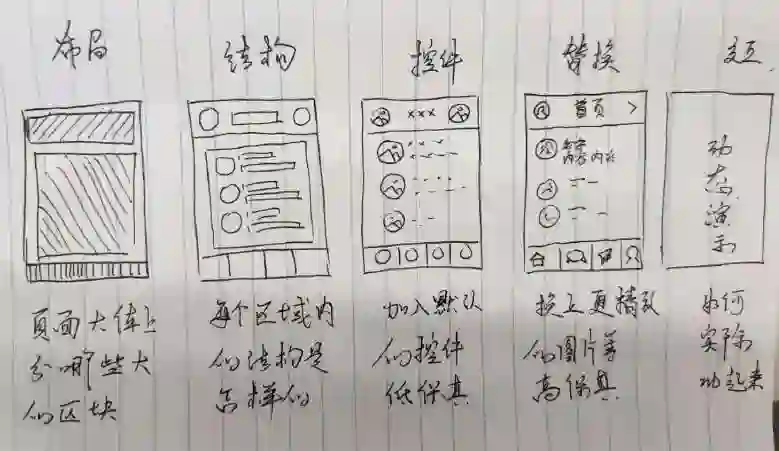 布局
结构
控件
替换
交互
×××
首页 >
动
态
演
示
页面大体上
分哪些大
的区块
每个区域内
的结构是
怎样的
加入默认
的控件
低保真
换上更精致
的图片等
高保真
如何
实际
动起来